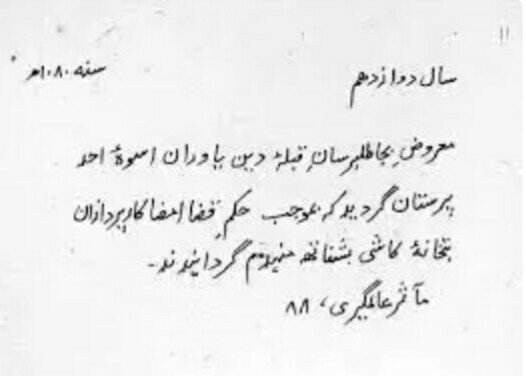 ۱۱
سال دوازدهم
سنه ۱۰۸۰ھ
معروض بجاطلپرسان قبلهٔ دین یاوران اسوهٔ احد
پرستان گردید که بموجب حکم قضا امضا کارپردازان
بتخانهٔ کاشی بشناتھ منہدم گردانیدند۔
مآثر عالمگیری، ۸۸